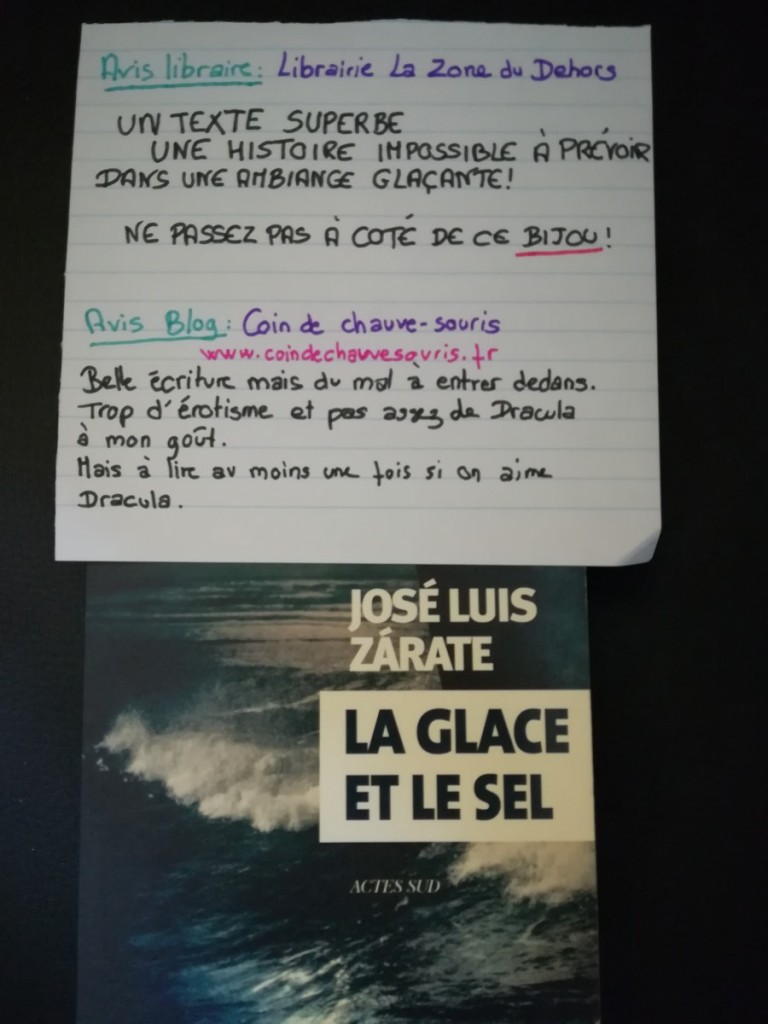 Avis libraire: Librairie La Zone du Dehors
UN TEXTE SUPERBE
UNE HISTOIRE IMPOSSIBLE À PRÉVOIR
DANS UNE AMBIANCE GLAÇANTE!
NE PASSEZ PAS À COTÉ DE CE BIJOU!
Avis Blog: Coin de chauve-souris
www.coindechauvesouris.fr
Belle écriture mais du mal à entrer dedans.
Trop d'érotisme et pas assez de Dracula
à mon goût.
Mais à lire au moins une fois si on aime
Dracula.
JOSÉ LUIS
ZÁRATE
LA GLACE
ET LE SEL
ACTES SUD